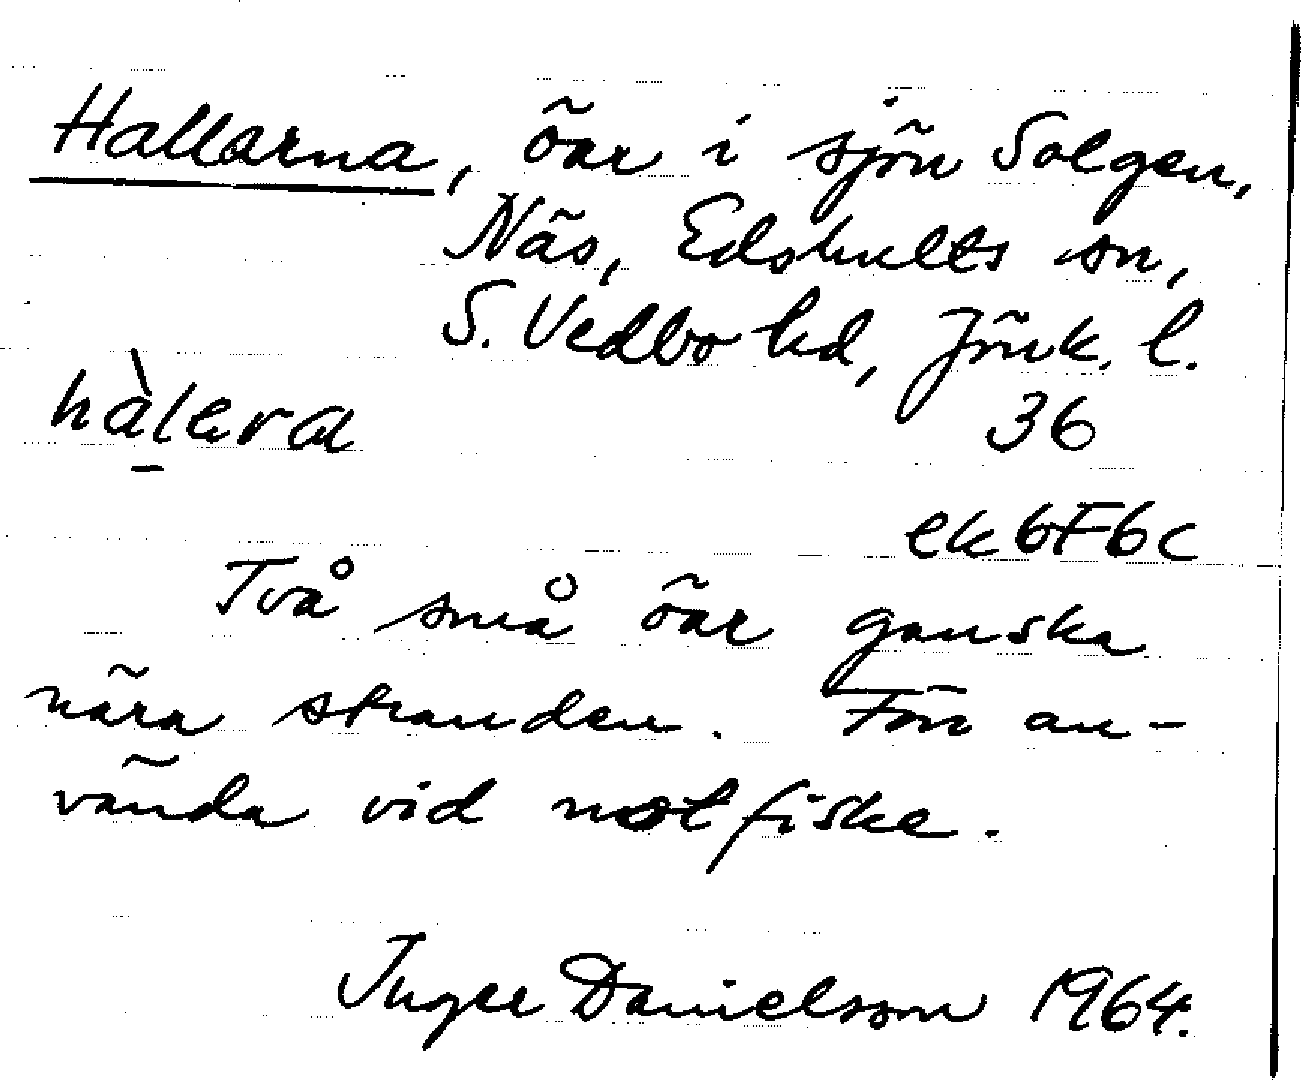 Hallarna, öar i sjön Solgen,
Näs, Edshults sn,
S. Vedbo hd, Jönk. l.
hàlera 36
ek6F6c
Två små öar ganska
nära stranden. Förr an-
vända vid notfiske.
Inger Danielsson 1964.